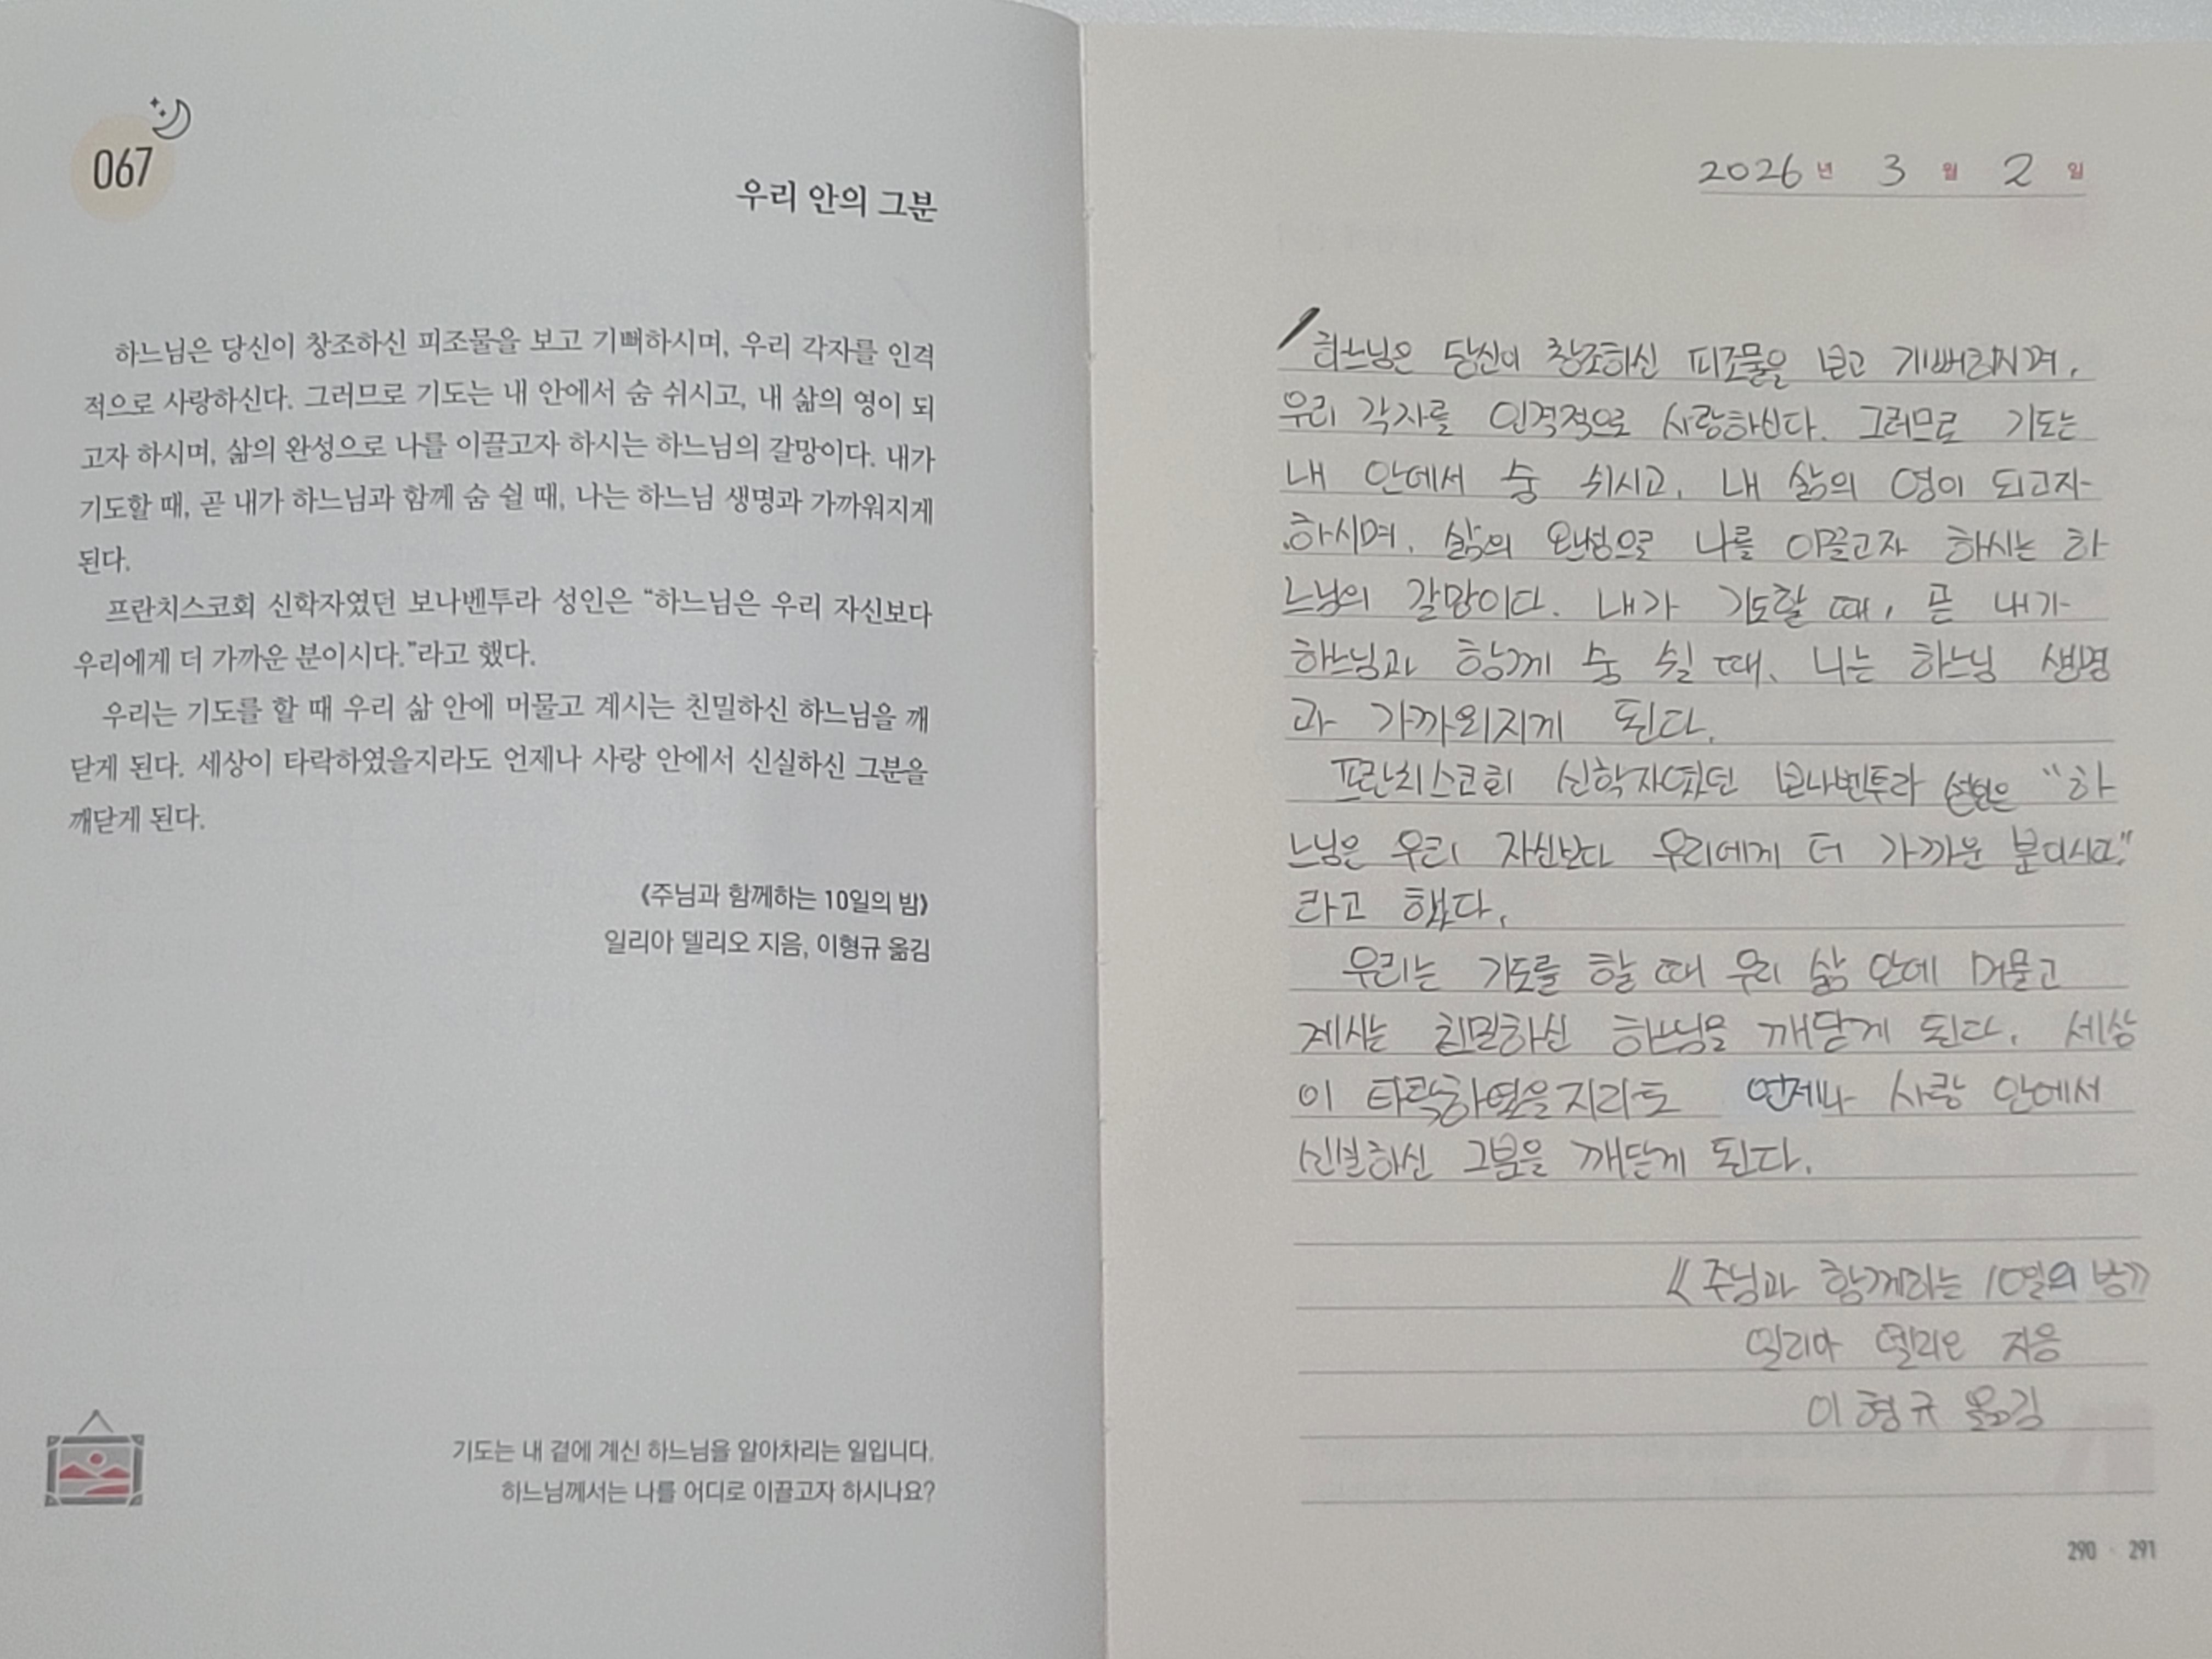 067
우리 안의 그분
하느님은 당신이 창조하신 피조물을 보고 기뻐하시며, 우리 각자를 인격
적으로 사랑하신다. 그러므로 기도는 내 안에서 숨 쉬시고, 내 삶의 영이 되
고자 하시며, 삶의 완성으로 나를 이끌고자 하시는 하느님의 갈망이다. 내가
기도할 때, 곧 내가 하느님과 함께 숨 쉴 때, 나는 하느님 생명과 가까워지게
된다.
프란치스코회 신학자였던 보나벤투라 성인은 “하느님은 우리 자신보다
우리에게 더 가까운 분이시다.”라고 했다.
우리는 기도를 할 때 우리 삶 안에 머물고 계시는 친밀하신 하느님을 깨
닫게 된다. 세상이 타락하였을지라도 언제나 사랑 안에서 신실하신 그분을
깨닫게 된다.
《주님과 함께하는 10일의 밤》
일리아 델리오 지음, 이형규 옮김
기도는 내 곁에 계신 하느님을 알아차리는 일입니다.
하느님께서는 나를 어디로 이끌고자 하시나요?
2026년 3월 2일
하느님은 당신이 창조하신 피조물을 보고 기뻐하시며,
우리 각자를 인격적으로 사랑하신다. 그러므로 기도는
내 안에서 숨 쉬시고, 내 삶의 영이 되고자
하시며, 삶의 완성으로 나를 이끌고자 하시는 하
느님의 갈망이다. 내가 기도할 때, 곧 내가
하느님과 함께 숨 쉴 때, 나는 하느님 생명
과 가까워지게 된다.
프란치스코회 신학자였던 보나벤투라 성인은 “하
느님은 우리 자신보다 우리에게 더 가까운 분이시다.”
라고 했다.
우리는 기도를 할 때 우리 삶 안에 머물고
계시는 친밀하신 하느님을 깨닫게 된다. 세상
이 타락하였을지라도 언제나 사랑 안에서
신실하신 그분을 깨닫게 된다.
《주님과 함께하는 10일의 밤》
일리아 델리오 지음
이형규 옮김
290 · 291